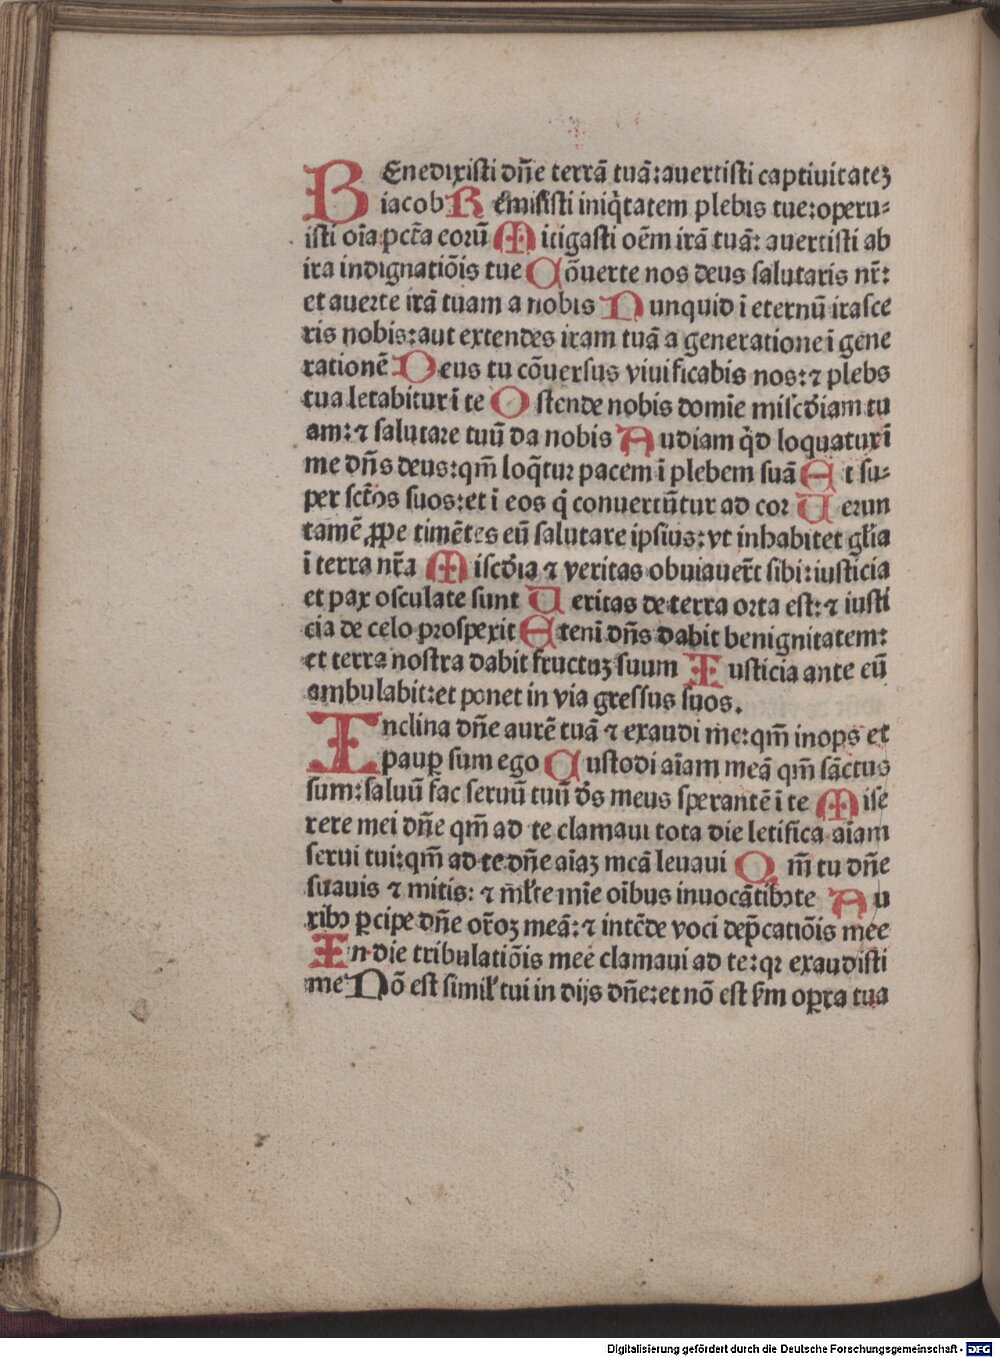 BEnedixisti dn̄e terrā tuā: auertisti captiuitatez
iacob Remisisti iniq̄tatem plebis tue: operu⸗
isti oīa pctā eorū Mitigasti oēm irā tuā: auertisti ab
ira indignatiōis tue Cōuerte nos deus salutaris nr̄:
et auerte irā tuam a nobis Nunquid ī eternū irasce
ris nobis: aut extendes iram tuā a generatione ī gene
rationē Deus tu cōuersus viuificabis nos: ⁊ plebs
tua letabitur ī te Ostende nobis domīe misc̄diam tu
am: ⁊ salutare tuū da nobis Audiam q̄d loquatur ī
me dn̄s deus: qm̄ loq̄tur pacem ī plebem suā Et su⸗
per sct̄os suos: et ī eos q̄ conuertūtur ad cor Uerun
tamē ꝓpe timētes eū salutare ipsius: vt inhabitet gl̄ia
ī terra nr̄a Misc̄dia ⁊ veritas obuiauer̄t sibi: iusticia
et pax osculate sunt Ueritas de terra orta est: ⁊ iusti
cia de celo prospexit Etenī dn̄s dabit benignitatem:
et terra nostra dabit fructuꝫ suum Iusticia ante eū
ambulabit: et ponet in via gressus suos.
Inclina dn̄e aurē tuā ⁊ exaudi me: qm̄ inops et
paup̄ sum ego Custodi aīam meā qm̄ sāctus
sum: saluū fac seruū tuū d̄s meus sperantē ī te Mise
rere mei dn̄e qm̄ ad te clamaui tota die letifica aīam
serui tui: qm̄ ad te dn̄e aīaꝫ meā leuaui Qm̄ tu dn̄e
suauis ⁊ mitis: ⁊ ml̄te mīe oībus inuocātibꝰ te Au
ribꝰ ꝑcipe dn̄e or̄oꝫ meā: ⁊ intēde voci dep̄catiōis mee
In die tribulatiōis mee clamaui ad te: qꝛ exaudisti
me Nō est simil̄ tui in dijs dn̄e: et nō est s̄m oꝑa tua
Digitalisierung gefördert durch die Deutsche Forschungsgemeinschaft - DFG